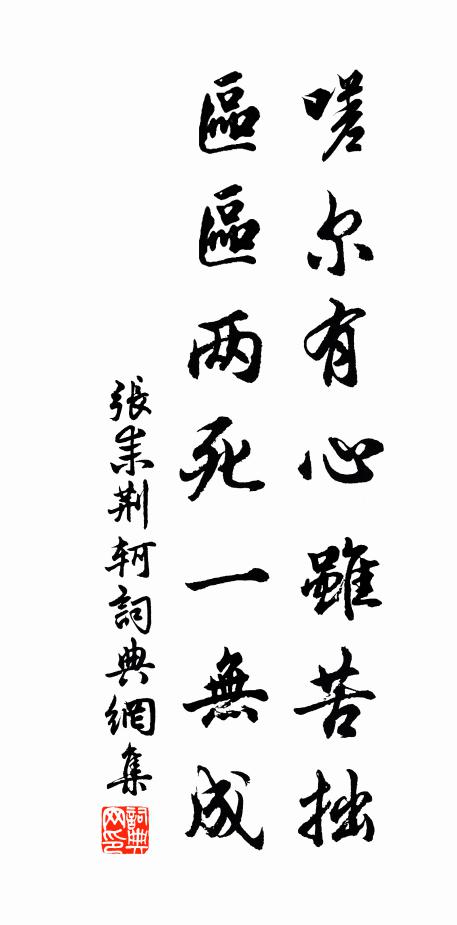 嗟尔有心雖苦拙
區區两死一無成
張耒荆軻詞典網集
詞典网印